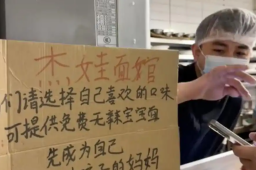 杰娃面馆
们请选择自己喜欢的口味
可提供免费无辣宝宝面
先成为自己
妈妈